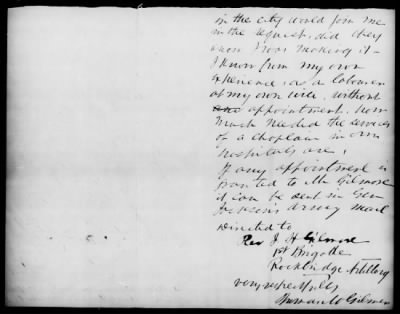 in the city would join me
in the request, did they
know I was making it -
I know from my own
experience, as a labourer
at my own will, without
appointment, how
much needed the services
of a chaplain in our
hospitals are.
If any appointment is
granted to Mr Gilmore
it can be sent in Gen
Jackson's army mail
directed to
Rev J H Gilmore
1st Brigade
Rockbridge Artillery
very respectfully
Gilmer